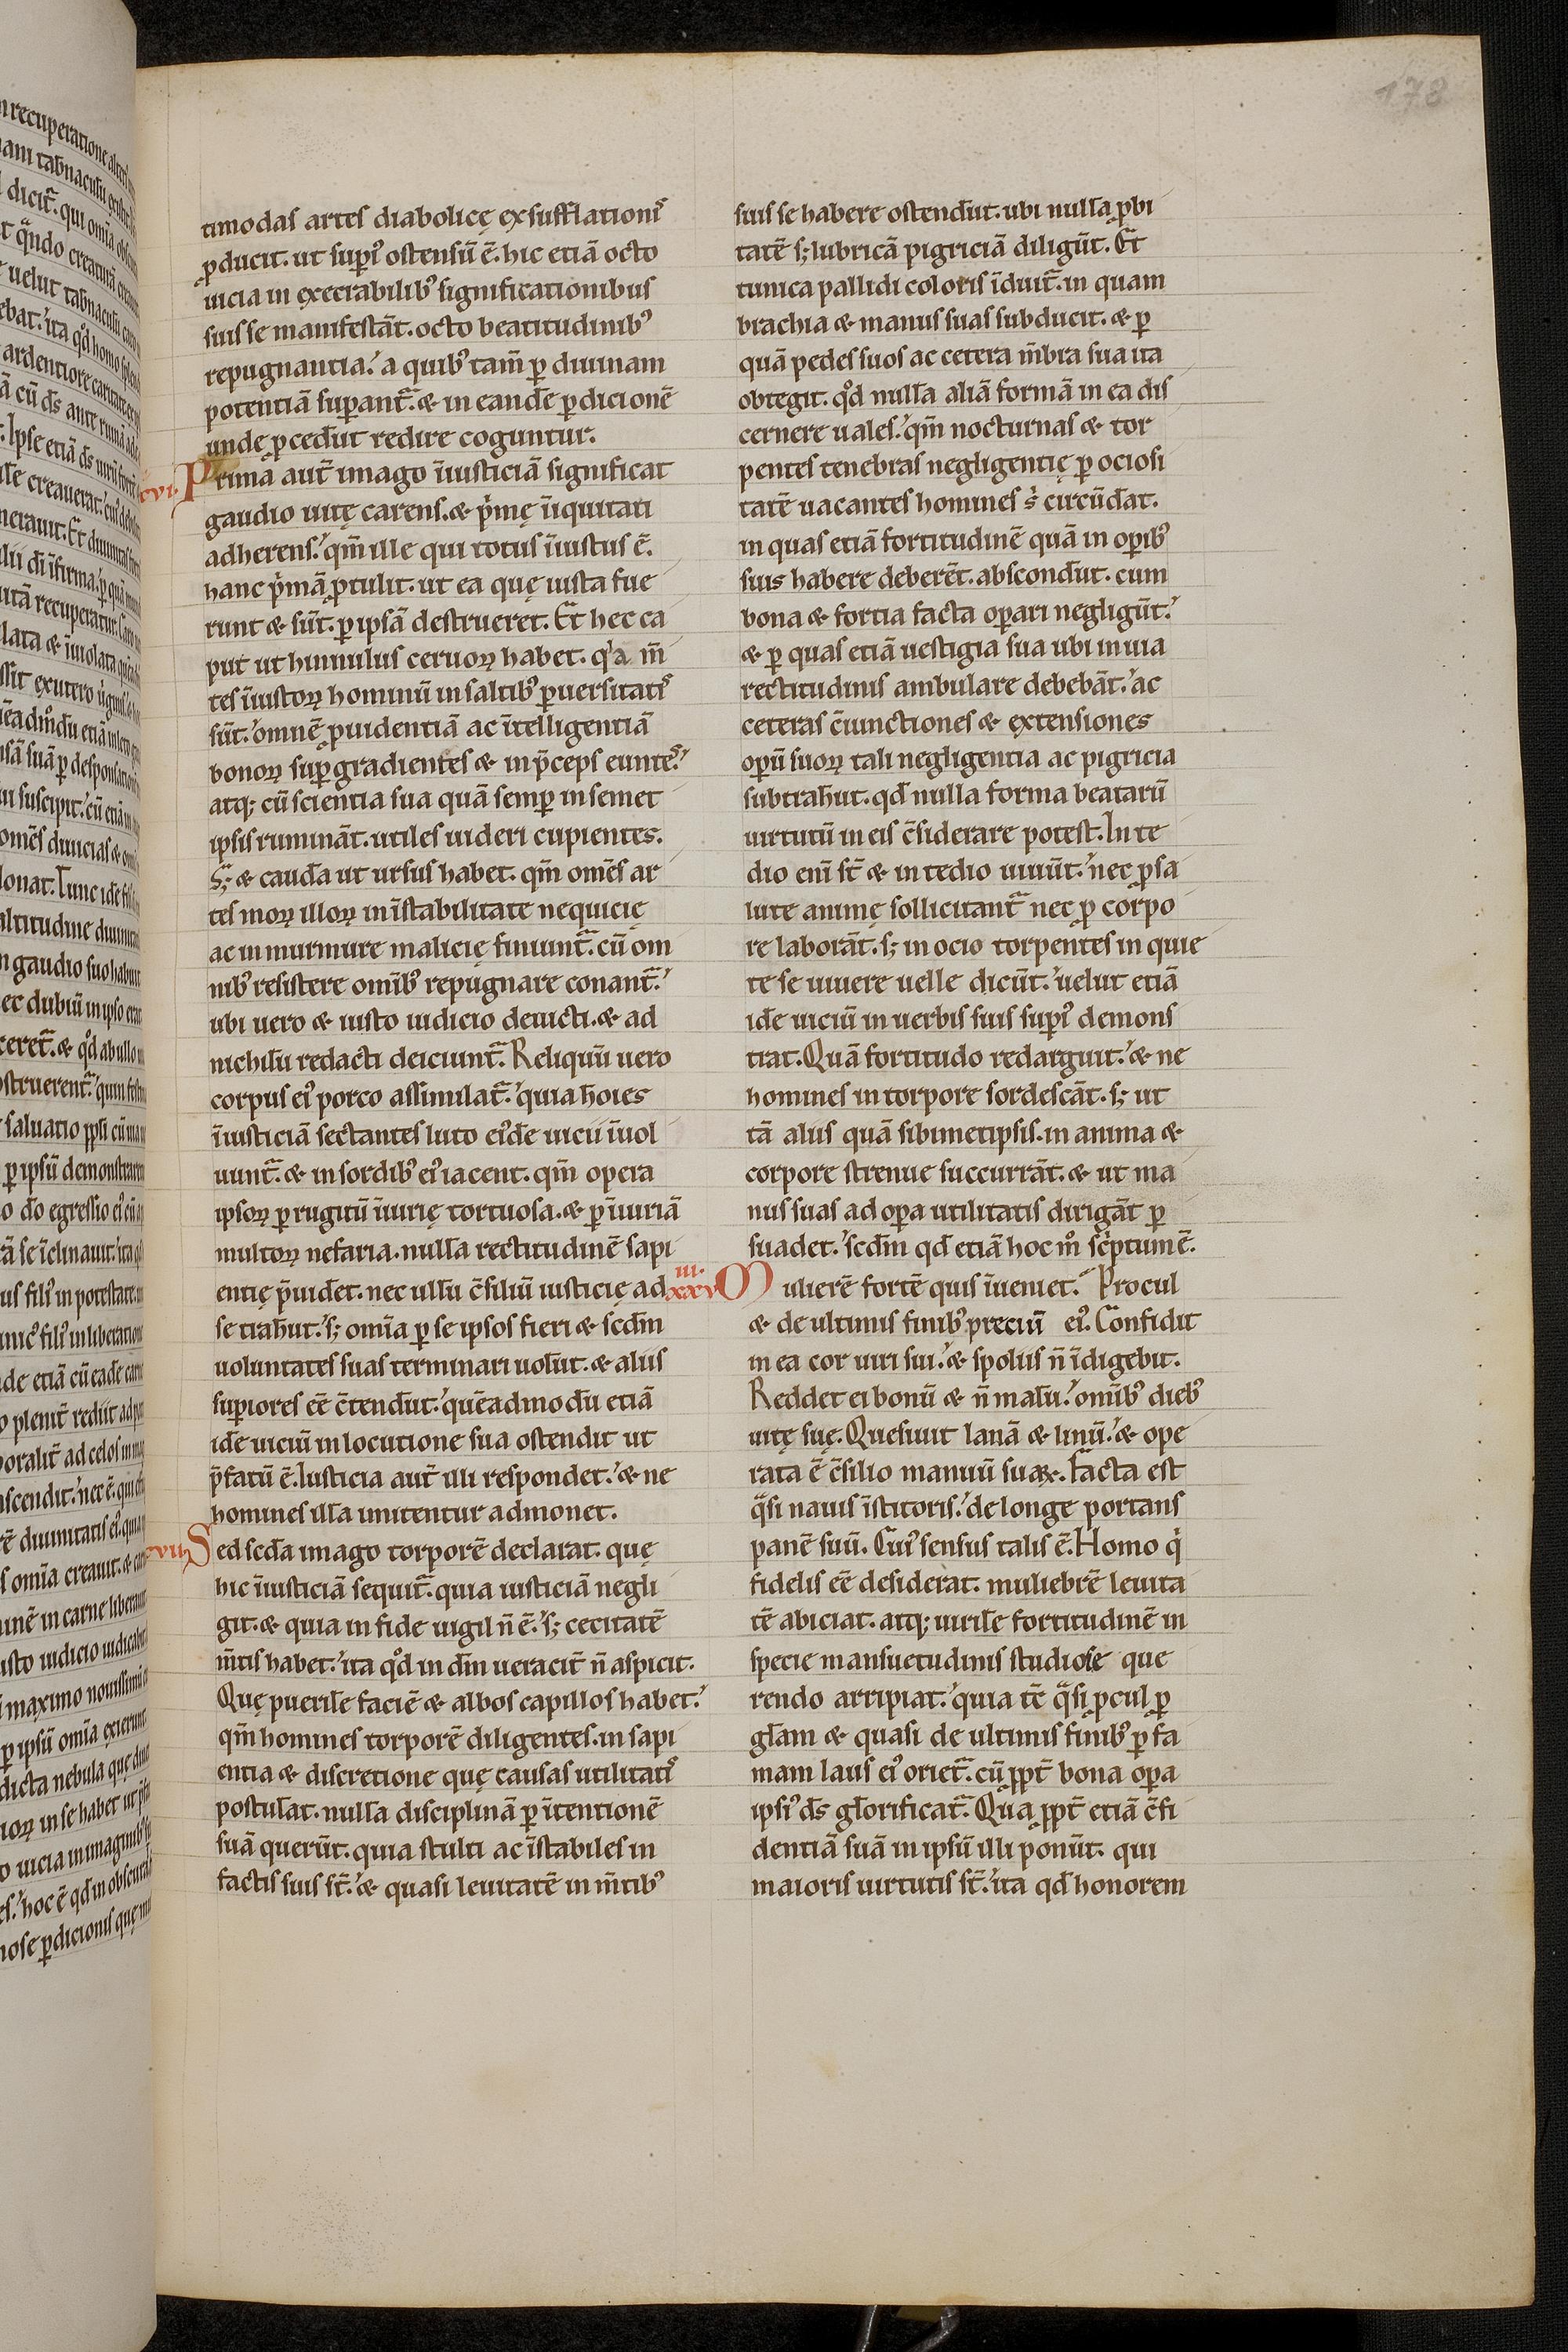 178
timodas artes diabolicę exsufflationis̉
ꝓducit. ut supi᷒ ostensū ē. hic etiā octo
uicia in execrabilib᷒ significationibus
suis se manifestāt. octo beatitudinib᷒
repugnantia.' a quib᷒ tam̄ ꝑ diuinam
potentiā suꝑant᷑. & in eandē ꝑdicionē
undę ꝓcedūt redire coguntur.
.cvi. Prima aut̄ imago īiusticiā significat
gaudio uitę carens. & p̄mę īiquitati
adherens.' qm̄ ille qui totus īiustus ē.
hanc p̄mā ꝓtulit. ut ea quę iusta fue
runt & sūt. ꝑ ipsā destrueret. Et̄ hec ca
put ut hinnulus ceruoꝝ habet. qͥa m̄
tes īiustoꝝ hominū in saltib᷒ ꝑuersitatis̉
sūt.' omnē ꝓuidentiā ac ītelligentiā
bonoꝝ suꝑgradientes & in p̄ceps euntes̉.'
atq; cū scientia sua quā semꝑ in semet
ipsis rumināt. utiles uideri cupientes.
S; & caudā ut ursus habet. qm̄ om̄s ar
tes moꝝ illoꝝ in īstabilitate nequicię
ac in murmure malicię finiunt᷑. cū om
nib᷒ resistere omīb᷒ repugnare conant᷑.'
ubi uero & iusto iudicio deuicti. & ad
nichilū redacti deiciunt᷑. Reliquū uero
corpus ei᷒ porco assimilat᷑.' quia hoīes
īiusticiā sectantes luto ei᷒dē uicii īuol
uunt᷑. & in sordib᷒ ei᷒ iacent. qm̄ opera
ipsoꝝ ꝑ rugitū īiurię tortuosa. & ꝑ īiuriā
multoꝝ nefaria. nullā rectitudinē sapi
entię p̄uidet. nec ullū c̄siliū iusticię ad
se trahūt.' s; omīa ꝑ se ipsos fieri & scd̄m
uoluntates suas terminari uolūt. & aliis
suꝑiores eē c̄tendūt.' quēadmodū etiā
idē uiciū in locutione sua ostendit ut
p̄fatū ē. Iusticia aut̄ illi respondet.' & ne
homines illā imitentur admonet.
.cvii. Sed scd̄a imago torporē declarat. quę
hic īiusticiā sequit᷑. quia iusticiā negli
git. & quia in fide uigil n̄ ē.' s; cecitatē
m̄tis habet.' ita qͦd in dm̄ ueracit̄ n̄ aspicit.
Quę puerilē faciē & albos capillos habet.'
qm̄ homines torporē diligentes. in sapi
entia & discretione quę causas utilitatis̉
postulat. nullā disciplinā ꝑ ītentionē
suā querūt. quia stulti ac īstabiles in
factis suis st̄.' & quasi leuitatē in m̄tib᷒
suis se habere ostendūt. ubi nullā ꝓbi
tatē s; lubricā pigriciā diligūt. Et̄
tunica pallidi coloris īduit᷑. in quam
brachia & manus suas subducit. & ꝑ
quā pedes suos ac cetera m̄bra sua ita
obtegit. qͦd nullā aliā formā in ea dis
cernere uales.' qm̄ nocturnas & tor
pentes tenebras negligentię ꝑ ociosi
tatē uacantes homines sͥ circūdāt.
in quas etiā fortitudinē quā in oꝑib᷒
suis habere deberēt. abscondūt. cum
bona & fortia facta oꝑari negligūt.'
& ꝑ quas etiā uestigia sua ubi in uia
rectitudinis ambulare debebāt.' ac
ceteras c̄iunctiones & extensiones
oꝑū suoꝝ tali negligentia ac pigricia
subtrahūt. qd̄ nulla forma beatarū
uirtutū in eis c̄siderare potest. In te
dio enī st̄ & in tedio uiuūt.' nec ꝓ sa
lute animę sollicitant᷑ nec ꝓ corpo
re laborāt. s; in ocio torpentes in quie
te se uiuere uelle dicūt.' uelut etiā
idē uiciū in uerbis suis supi᷒ demons
trat. Quā fortitudo redarguit.' & ne
homines in torpore sordescāt. s; ut
tā aliis quā sibimetipsis. in anima &
corpore strenue succurrāt. & ut ma
nus suas ad oꝑa utilitatis dirigāt ꝑ
suadet.' scd̄m qd̄ etiā hoc mͦ sc̄ptum ē.
.xxviii. Mulierē fortē quis īueniet.' Procul
& de ultimis finib᷒ preciū ei᷒. Confidit
in ea cor uiri sui.' & spoliis n̄ īdigebit.
Reddet ei bonū & n̄ malū.' omīb᷒ dieb᷒
uitę suę. Quesiuit lanā & linū.' & ope
rata ē c̄silio manuū suaꝝ. Facta est
qᷓsi nauis īstitoris.' de longe portans
panē suū. Cui᷒ sensus talis ē. Homo qͥ
fidelis eē desiderat. muliebrē leuita
tē abiciat. atq; uirilē fortitudinē in
specie mansuetudinis studiose que
rendo arripiat.' quia tc̄ qᷓsi ꝓcul ꝑ
glam̄ & quasi de ultimis finib᷒ ꝑ fa
mam laus ei᷒ oriet᷑. cū ꝓpt̄ bona oꝑa
ipsi᷒ ds̄ glorificat᷑. Qua ꝓpt̄ etiā c̄fi
dentiā suā in ipsū illi ponūt. qui
maioris uirtutis st̄.' ita qd̄ honorem